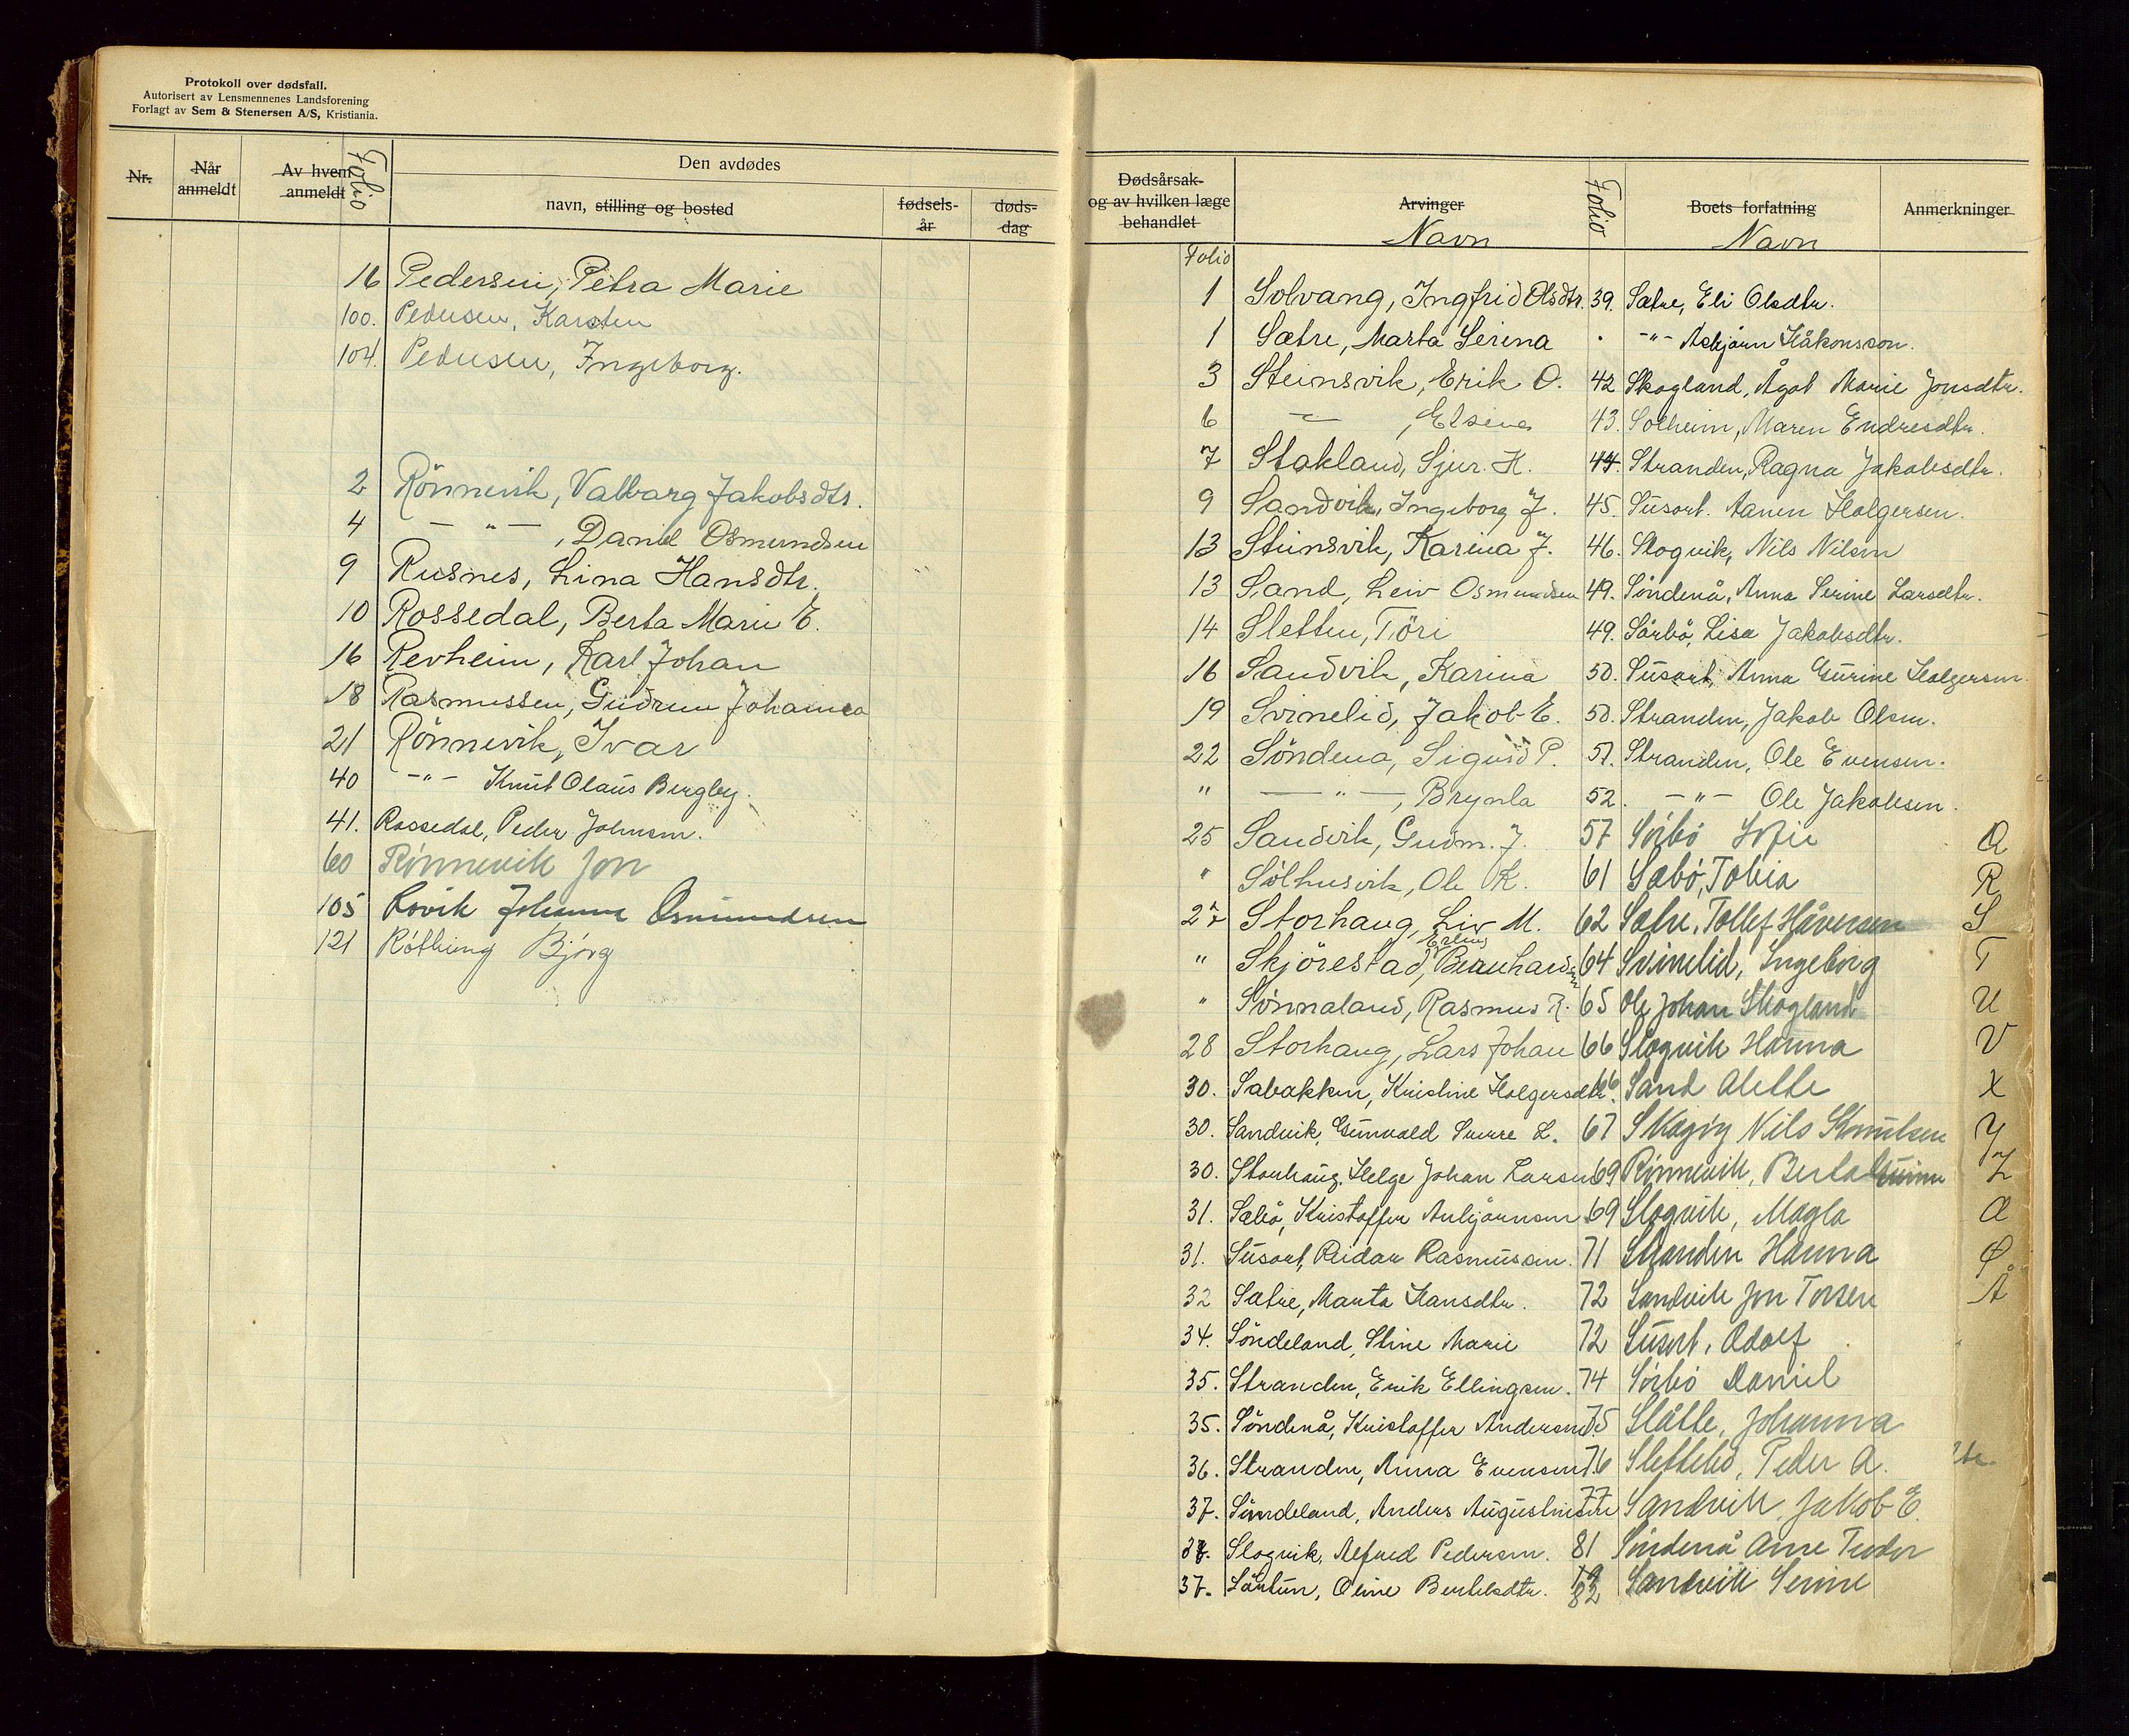 Protokoll over dødsfall.
Autorisert av Lensmennenes Landsforening
Forlagt av Sem & Stenersen A/S, Kristiania.
Nr.
Når anmeldt
Av hvem anmeldt
Folio
Den avdødes
navn, stilling og bosted
fødsels-år
døds-dag
16 Pedersen, Petra Marie
100. Pedersen, Karsten
104. Pedersen, Ingeborg.
2 Rönnevik, Valborg Jakobsdtr.
4 — " — , Daniel Osmundsen
9 Rusnes, Lina Hansdtr.
10 Rossedal, Berta Marie E.
16 Revheim, Karl Johan
18 Rasmussen, Gudrun Johanna
21 Rönnevik, Ivar
40 - " - Knut Olaus Bergby.
41. Rossedal, Peder Johnsen.
60 Rönnevik Jon
105 Røvik Johanne Osmundsen
121 Røthing Bjørg
Dødsårsak og av hvilken læge behandlet
Arvinger
Navn
Folio
Boets forfatning
Navn
Anmerkninger
Folio
1 Solvang, Ingfrid Olsdtr. 39. Sætre, Eli Olsdtr.
1 Sætre, Marta Serina . - " - Asbjørn Håkonsson.
3 Steinsvik, Erik O. 42 Skogland, Ågot Marie Jonsdtr.
6 — , Elsine 43. Solheim, Maren Endresdtr.
7 Stakland, Sjur H. 44. Stranden, Ragna Jakobsdtr.
9 Sandvik, Ingeborg J. 45. Susort. Aanen Holgersen.
13 Steinsvik, Karina J. 46. Slogvik, Nils Nilsen
13 Sand, Leiv Osmundsen 49. Söndenå, Anna Serine Larsdtr.
14 Sletten, Töri 49. Sörbö, Lisa Jakobsdtr.
16 Sandvik, Karina 50. Susort, Anna Gurine Holgersen
19 Svinelid, Jakob E. 50. Stranden, Jakob Olsen.
22 Söndena, Sigurd P. 51. Stranden, Ole Evensen.
" — " — , Brynla 52. - " - Ole Jakobsen.
25 Sandvik, Gudm. J. 57 Sörbö Sofie Q
" Sölhusvik, Ole K. 61 Sæbö, Tobia R
27 Storhaug, Liv M. 62 Sætre, Tollef Håversen S
Erling
" Skjörestad, Bernhardsen 64 Svinelid, Ingeborg T
" Sönnaland, Rasmus R. 65 Ole Johan Skogland U
28 Storhaug, Lars Johan 66 Slogvik Hanna V
30. Sabakken, Kristine Holgersdtr. 66 Sand Alette X
30. Sandvik, Gunvald Sverre L. 67 Skagøy Nils Knutsen Y
30. Storhaug, Helge Johan Larsen 69 Rönnevik, Berta Gurine Z
31. Sæbö, Kristoffer Anbjørnsen 69 Slogvik, Magla Æ
31. Susort, Reidar Rasmussen. 71 Stranden Hanna Ø.
32 Sætre, Marta Hansdtr. 72 Sandvik Jon Torsen Å
34. Söndeland, Stine Marie 72 Susort, Adolf
35. Stranden, Erik Ellingsen. 74 Sörbö Daniel
35. Söndenå, Kristoffer Andersen 75 Slåtte, Johanna
36. Stranden, Anna Evensen 76 Slettebö, Peder A.
37. Söndeland, Anders Augustinsen 77 Sandvik, Jakob E.
37. Slogvik, Alfred Pedersen. 81 Söndenå Arne Tveder
37. Sörtun, Oline Bertelsdtr. 82 Sandvik Serine